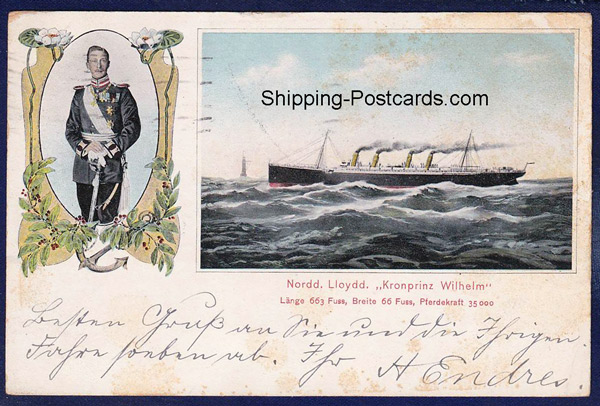 Shipping-Postcards.com
Nordd. Lloydd. „Kronprinz Wilhelm"
Länge 663 Fuss, Breite 66 Fuss, Pferdekraft 35000
Besten Gruß an Sie und die Ihrigen.
Fahre soeben ab. Ihr H Endres.